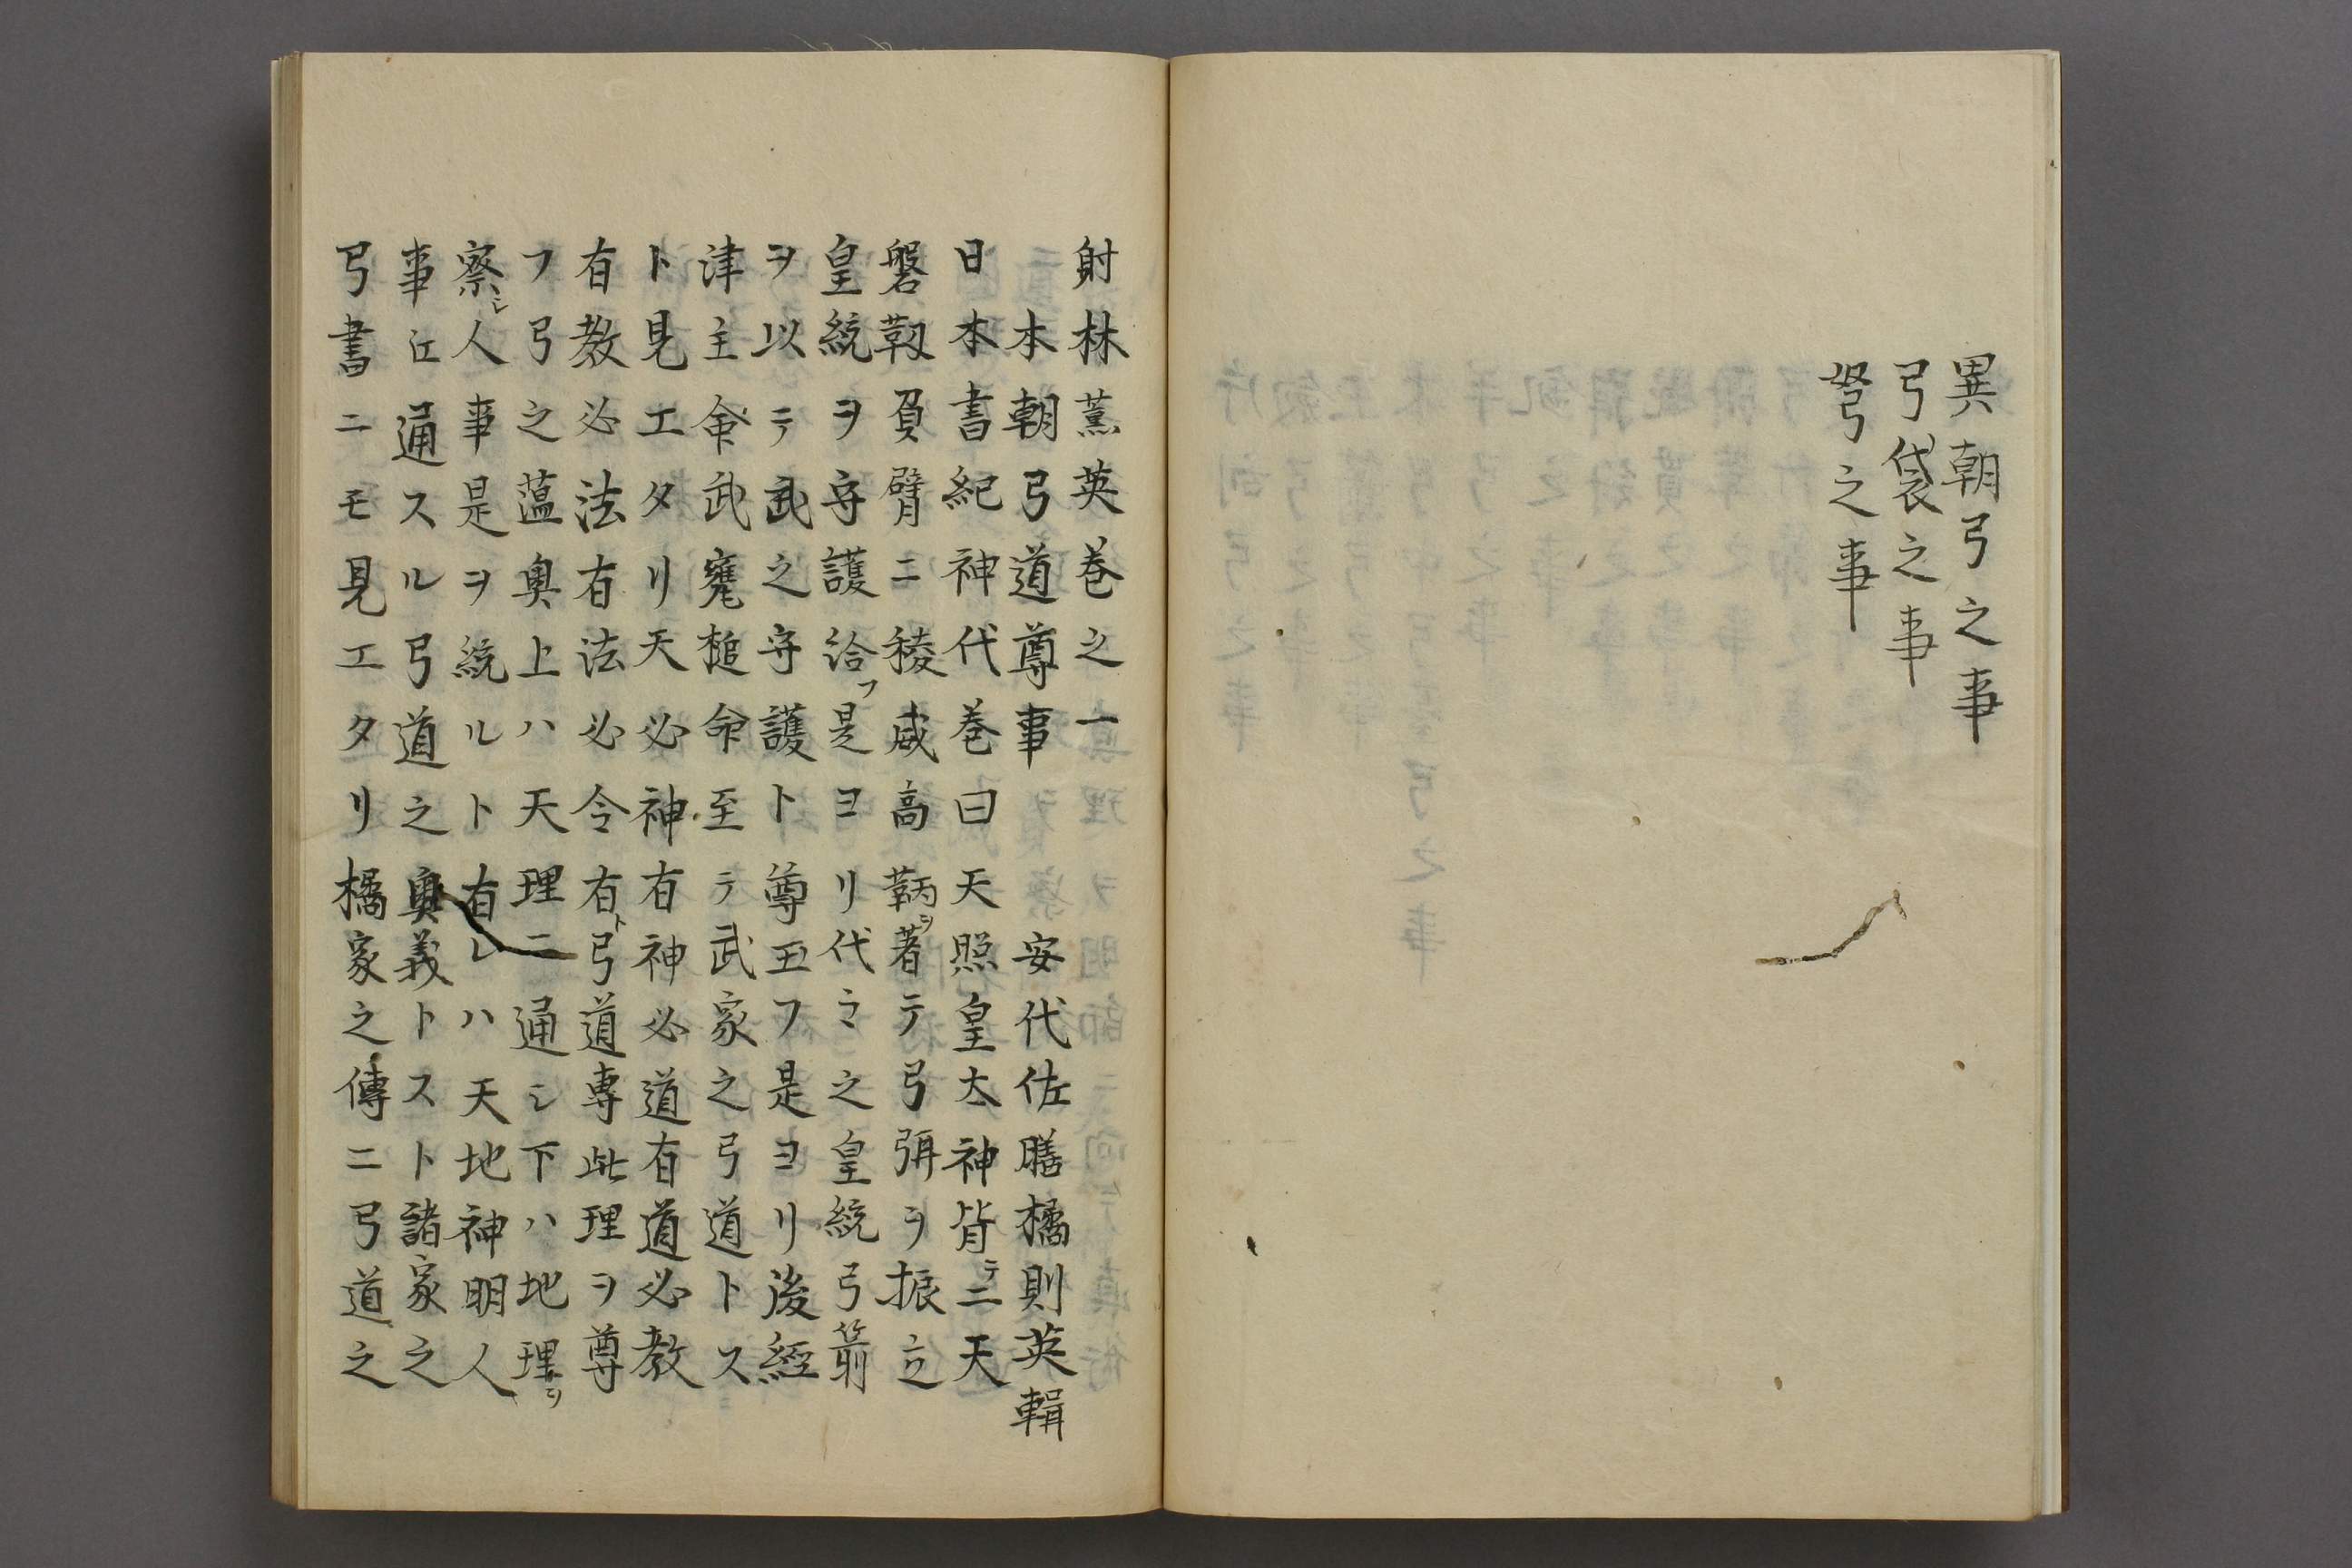 異朝弓之事
弓袋之事
弩弓之事
射林薫英巻之一
本朝弓道尊事　安代佐膳橘則英輯
日本書紀神代巻曰天照皇太神背テニ天
磐靫負臂ニ稜威高鞆ヲ著テ弓弭ヲ振立
皇統ヲ守護給フ是ヨリ代々之皇統弓箭
ヲ以テ武之守護ト尊玉フ是ヨリ後經
津主命武甕槌命至テ武家之弓道トス
ト見エタリ天必神有神必道有道必教
有教必法有法必令有ト弓道專此理ヲ尊
フ弓之薀奥上ハ天理ニ通シ下ハ地理ヲ
察シ人事是ヲ統ルト有レハ天地神明人
事江通スル弓道之奥義トスト諸家之
弓書ニモ見エタリ橘家之傳ニ弓道之